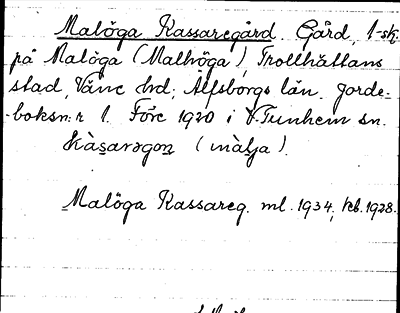 Malöga Kassaregård. Gård, 1-sk.
på Malöga (Malhöga), Trollhättans
stad, Väne hd; Älfsborgs län. Jorde-
boksn:r 1. Före 1920 i V.Tunhem sn.
Malöga Kassareg. ml. 1934, kb. 1928.